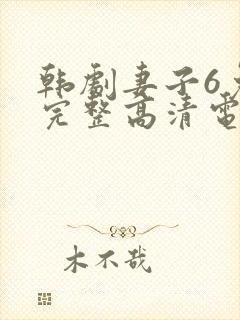 韩劇妻子6
完整高清電
木不哉